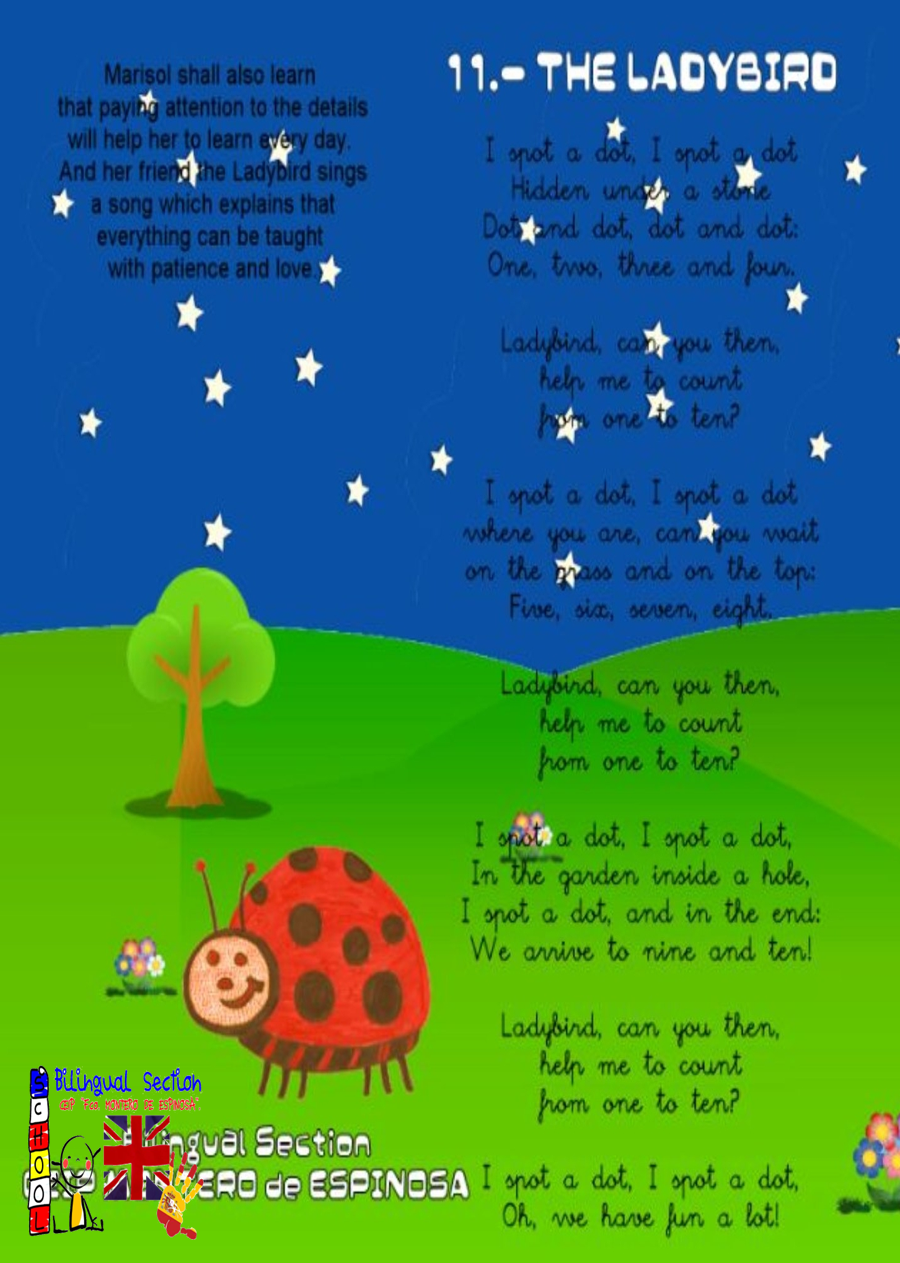 Marisol shall also learn
that paying attention to the details
will help her to learn every day.
And her friend the Ladybird sings
a song which explains that
everything can be taught
with patience and love.
11.- THE LADYBIRD
I spot a dot, I spot a dot
Hidden under a stone
Dot and dot, dot and dot:
One, two, three and four.
Ladybird, can you then,
help me to count
from one to ten?
I spot a dot, I spot a dot
where you are, can you wait
on the grass and on the top:
Five, six, seven, eight.
Ladybird, can you then,
help me to count
from one to ten?
I spot a dot, I spot a dot,
In the garden inside a hole,
I spot a dot, and in the end:
We arrive to nine and ten!
Ladybird, can you then,
help me to count
from one to ten?
I spot a dot, I spot a dot,
Oh, we have fun a lot!
SCHOOL
Bilingual Section
CEIP "Fco. MONTERO DE ESPINOSA".
Bilingual Section
de ESPINOSA